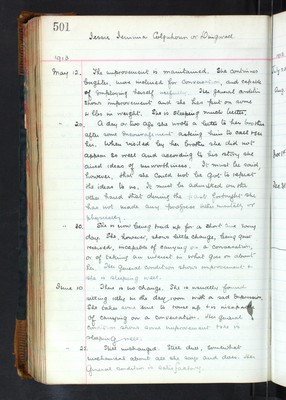 501
Jessie Jemima Colquhoun or Dingwall
1913
May 12. The improvement is maintained. She continues
brighter, more inclined for conversation, and capable
of employing herself
The general condition
shows improvement and she has put on some
lbs in weight. She is sleeping much better.
" 20. A day or two ago she wrote a letter to her brother
after some encouragement asking him to call & see
her. When visited by her brother she did not
appear so well and according to his story she
aired ideas of unworthiness. It must be said,
however, that she could not be got to repeat
the ideas to us. It must be admitted on the
other hand that during the past fortnight she
has not made any progress either mentally or
physically.
" 30. She is now being got up for a short time every
day. She, however, shows little change, being quiet
reserved, incapable of carrying on a conversation,
or of taking an interest in what goes on about
her. The general condition shows improvement &
she is sleeping well.
June 10. There is no change. She is usually found
sitting idly in the day room with a sad expression.
She takes
time to rouse up & is incapable
of carrying on a conversation. Her general
condition shows some improvement & she is
sleeping well.
" 25. Still unchanged. Still dull, somewhat
mechanical about all she says and does. Her
general condition is satisfactory.